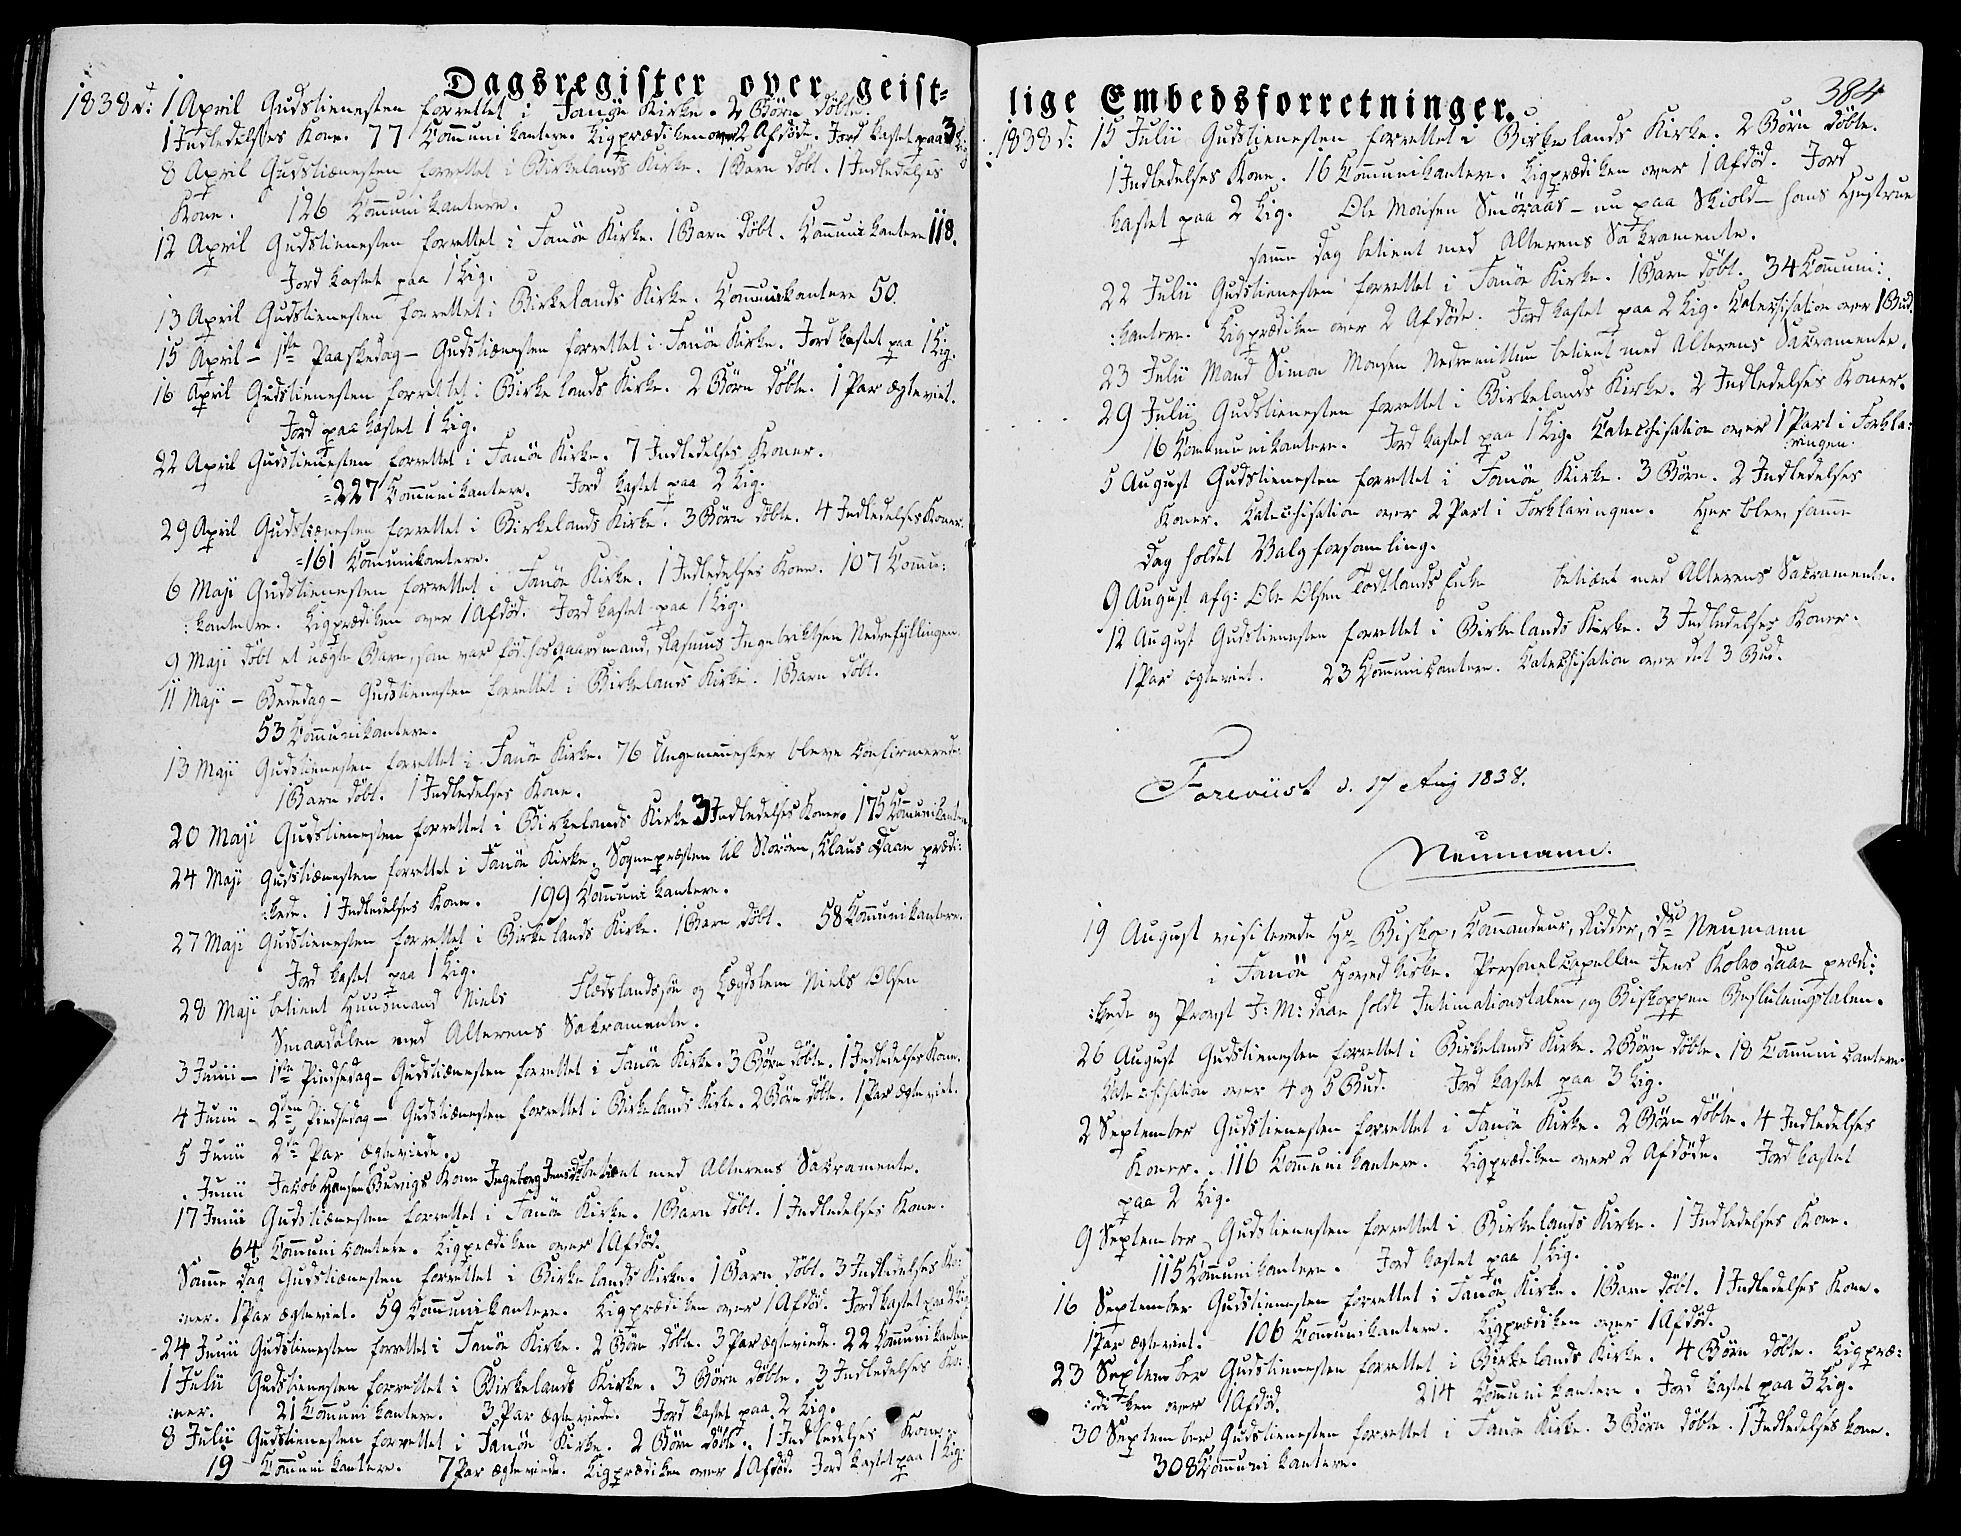 Dagsregister over geist-
1838 d: 1 April Gudstienesten forrettet i Fanöe Kirke. 2 Börn döbte.
1 Indledelses Kone. 77 Communikantere. Ligprædiken over 2 Afdöde. Jord kastet paa 3 Lig
8 April Gudstienesten forrettet i Birkelands Kirke. 1 Barn döbt. 1 Indledelses
Kone. 126 Communikantere.
12 April Gudstienesten forrettet i Fanöe Kirke. 1 Barn döbt. Communikantere 118.
Jord kastet paa 1 Lig.
13 April Gudstienesten forrettet i Birkelands Kirke. Communikantere 50.
15 April - 1ste Paaskedag - Gudstienesten forrettet i Fanöe Kirke. Jord kastet paa 1 Lig.
16 April Gudstienesten forrettet i Birkelands Kirke. 2 Börn döbte. 1 Par ægteviet.
Jord paa kastet 1 Lig.
22 April Gudstienesten forrettet i Fanöe Kirke. 7 Indledelses Koner.
=227 Communikantere. Jord kastet paa 2 Lig.
29 April Gudstienesten forrettet i Birkelands Kirke. 3 Börn döbte. 4 Indledelses Koner.
=161 Communikantere.
6 Maji Gudstienesten forrettet i Fanöe Kirke. 1 Indledelses Kone. 107 Commu:
:kantere. Ligprædiken over 1 Afdöd. Jord kastet paa 1 Lig.
9 Maji döbt et uægte Barn, som var föd hos Gaardmand, Rasmus Ingebriktsen Nedrefyllingen.
11 Maji - Bededag - Gudstienesten forrettet i Birkelands Kirke. 1 Barn döbt.
53 Communikantere.
13 Maji Gudstienesten forrettet i Fanöe Kirke. 76 Ungemennesker bleve Confirmerede.
1 Barn döbt. 1 Indledelses Kone.
20 Maji Gudstienesten forrettet i Birkelands Kirke 3 Indledelses Koner. 175 Communikantere
24 Maji Gudstienesten forrettet i Fanöe Kirke. Sognepræsten til Storöen, Claus Daae prædi:
:kede. 1 Indledelses Kone. 199 Communikantere.
27 Maji Gudstienesten forrettet i Birkelands Kirke. 1 Barn döbt. 58 Communikantere.
Jord kastet paa 1 Lig.
28 Maji betient Huusmand Niels Flædslandssön og Lægdslem Niels Olsen
Smaadalen med Alterens Sakramente.
3 Junii - 1ste Pindsedag - Gudstienesten forrettet i Fanöe Kirke. 3 Börn döbte. 1 Indledelses Kone.
4 Junii - 2den Pindsedag - Gudstienesten forrettet i Birkelands Kirke. 2 Börn döbte. 1 Par ægteviet.
5 Junii 2de Par ægteviede.
. Junii Jakob Hansen Burigs Kone Ingeborg Jensd: betient med Alterens Sakramente.
17 Junii Gudstienesten forrettet i Fanöe Kirke. 1 Barn döbt. 1 Indledelses Kone.
64 Communicantere. Ligprædiken over 1 Afdöd.
Samme dag Gudstienesten forrettet i Birkelands Kirke. 1 Barn döbt. 3 Indledelses Ko:
:ner. 1 Par ægteviet. 59 Communikantere. Ligprædiken over 1 Afdöd. Jord kastet paa 2 Lig
24 Junii Gudstienesten forrettet i Fanöe Kirke. 2 Börn döbte. 3 Par ægteviede. 22 Communikantere
1 Julii Gudstienesten forrettet i Birkelands Kirke. 3 Börn döbte. 3 Indledelses Ko:
:ner. 21 Communikantere. 3 Par ægteviede. Jord kastet paa 2 Lig.
8 Julii Gudstienesten forrettet i Fanöe Kirke. 2 Börn döbte. 1 Indledelses Kone.
19 Communikantere. 7 Par ægteviede. Ligprædiken over 1 Afdöd. Jord kastet paa 1 Lig.
lige Embedsforretninger.
384
1838 d: 15 Julii Gudstienesten forrettet i Birkelands Kirke. 2 Börn döbte.
1 Indledelses Kone. 16 Communikantere. Ligprædiken over 1 Afdöd. Jord
kastet paa 2 Lig. Ole Monsen Smöraas - nu paa Skiold - hans Hustrue
samme dag betient med Alterens Sakramente.
22 Julii Gudstienesten forrettet i Fanöe Kirke. 1 Barn döbt. 34 Communi:
:kantere. Ligprædiken over 2 Afdöde. Jord kastet paa 2 Lig. Katechisation over 1 Bud.
23 Julii Mand Simon Monsen Nedremittun betient med Alterens Sakramente.
29 Julii Gudstienesten forrettet i Birkelands Kirke. 2 Indledelses Koner.
16 Communikantere. Jord kastet paa 1 Lig. Katechisation over 1 Part i Forkla:
ringen.
5 August Gudstienesten forrettet i Fanöe Kirke. 3 Börn. 2 Indledelses
Koner. Katechisation over 2 Part i Forklaringen. Her blev samme
dag holdet Valgforsamling.
9 August afg: Ole Olsen Tostlands Enke betient med Alterens Sakramente.
12 August Gudstienesten forrettet i Birkelands Kirke. 3 Indledelses Koner.
1 Par ægteviet. 23 Communicantere. Catechisation over det 3 Bud.
Foreviist d. 17 Aug 1838.
Neumann.
19 August visiterede Hr Biskop, Commandeur, Ridder, Dr Neumann
i Fanöe Hovedkirke. Personelcapellan Jens Kobro Daae prædi:
:kede og Provst J: M: Daae holdt Intimationstalen, og Biskoppen Beslutningstalen.
26 August Gudstienesten forrettet i Birkelands Kirke. 2 Börn döbte. 18 Communicantere
Katechisation over 4 og 5 Bud. Jord kastet paa 3 Lig.
2 September Gudstienesten forrettet i Fanöe Kirke. 2 Börn döbte. 4 Indledelses
Koner. 116 Communikantere. Ligprædiken over 2 Afdöde. Jord kastet
paa 2 Lig.
9 September Gudstienesten forrettet i Birkelands Kirke. 1 Indledelses Kone.
115 Communikantere. Jord kastet paa 1 Lig.
16 September Gudstienesten forrettet i Fanöe Kirke. 1 Barn döbt. 1 Indledelses Kone.
1 Par ægteviet. 106 Communikantere. Ligprædiken over 1 Afdöd.
23 September Gudstienesten forrettet i Birkelands Kirke. 4 Börn döbte. Ligpræ:
:diken over 1 Afdöd. 214 Communikantere. Jord kastet paa 3 Lig.
30 September Gudstienesten forrettet i Fanöe Kirke. 3 Börn döbte. 1 Indledelses kone.
308 Communikantere.